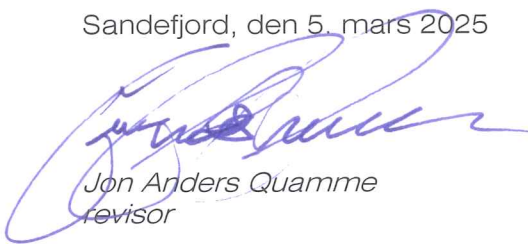 Sandefjord, den 5. mars 2025
Jon Anders Quamme
revisor